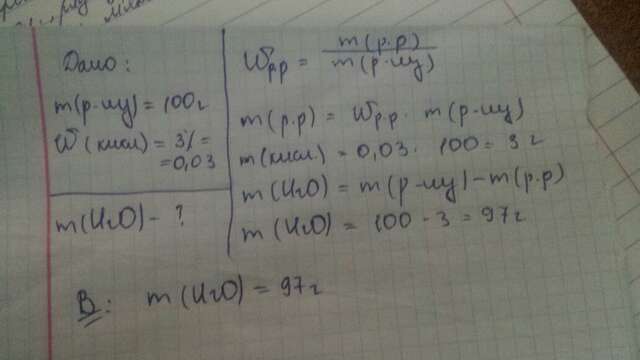 Дано:
m(р-ну) = 100г
W(кисл.) = 3% =
= 0,03
m(H2O) - ?
Wрр = m(р.р) / m(р-ну)
m(р.р) = Wр.р. · m(р-ну)
m(кисл.) = 0,03 · 100 = 3 г
m(H2O) = m(р-ну) - m(р.р)
m(H2O) = 100 - 3 = 97г
В: m(H2O) = 97г